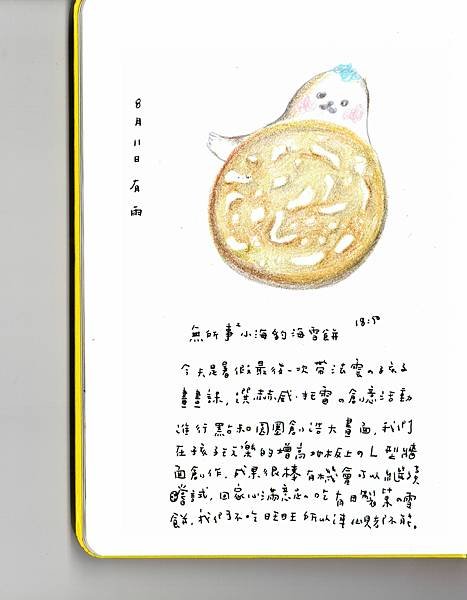 8月11日 有雨
無所事事小海豹海雪餅
18:50
今天是暑假最後一次帶法雲の孩子
畫畫課，選赫威·托雷の創意活動
進行點和圓圈創造大畫面，我們
在孩子玩樂的增高地板上のL型牆
面創作，成果很棒有機會可以繼續
嘗試，回家心滿意足の吃有日製菓の雪
餅，我們不吃旺旺所以連